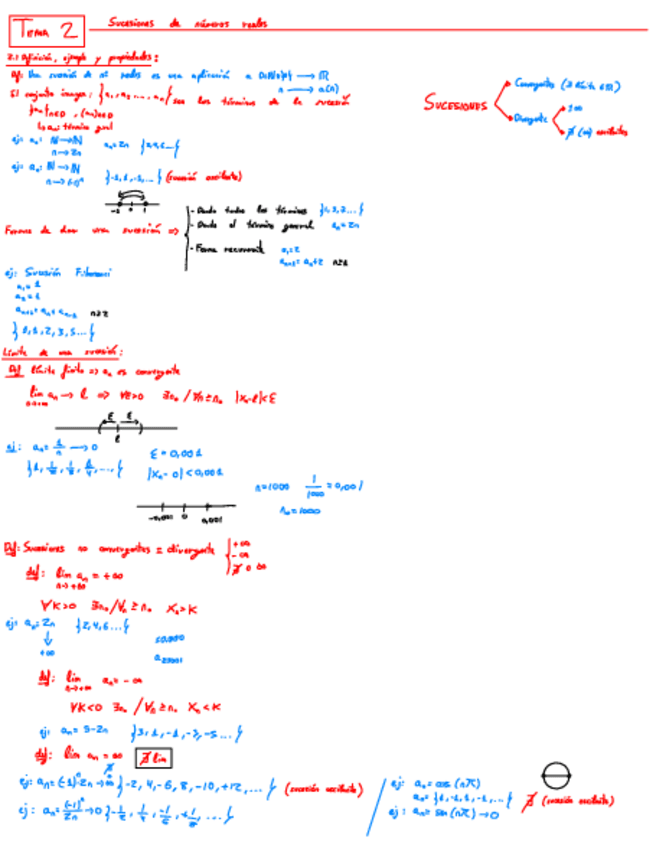 Tema 2
Sucesiones de números reales
2.1 Definición, ejemplo y propiedades:
Df: Una sucesión de nº reales es una aplicación a: D⊂ℕ → ℝ
n → a(n)
El conjunto imagen: {a₁, a₂, ..., aₙ} son los términos de la sucesión
{aₙ}n∈D , (aₙ)n∈D
↳ aₙ: término gral
ej: aₙ: ℕ→ℕ
n→2n
aₙ=2n {2,4,6...}
ej: aₙ: ℕ→ℕ
n→(-1)ⁿ
{-1, 1, -1, ...} (sucesión oscilante)
-1 0 1
SUCESIONES
Convergentes (∃ límite ∈ ℝ)
Divergente
±∞
∄ (∞) oscilantes
Formas de dar una sucesión =>
- Dando todos los términos {1, 2, 3...}
- Dando el término general aₙ=2n
- Forma recurrente a₁=2
aₙ₊₁=aₙ+2 n≥1
ej: Sucesión Fibonacci
a₁=1
a₂=1
aₙ₊₁=aₙ+aₙ₋₁ n≥2
{1, 1, 2, 3, 5...}
Límite de una sucesión:
Def límite finito => aₙ es convergente
lim aₙ → l => ∀ε>0 ∃n₀ / ∀n≥n₀ |xₙ-l|<ε
n→∞
ε ε
l
ej: aₙ=1/n → 0
{1, 1/2, 1/3, 1/4, ...}
ε=0,001
|xₙ-0|<0,001
n=1000 1/1000=0,001
n₀=1000
-0,001 0 0,001
Def: Sucesiones no convergentes = divergente
+∞
-∞
∄ o ∞
def: lim aₙ=+∞
n→+∞
∀K>0 ∃n₀/∀n≥n₀ xₙ>K
ej: aₙ=2n {2,4,6...}
↓
+∞
def: lim aₙ=-∞
n→+∞
∀K<0 ∃n₀ /∀n≥n₀ xₙ<K
ej: aₙ=5-2n {3, 1, -1, -3, -5...}
def: lim aₙ=∞ ∄ lim
ej: aₙ=(-1)ⁿ·2n→∞ {-2, 4, -6, 8, -10, +12, ...} (sucesión oscilante)
ej: aₙ=(-1)ⁿ/2n→0
ej: aₙ=cos(nπ)
aₙ={1, -1, 1, -1, ...} ∄ (sucesión oscilante)
ej: aₙ=sen(nπ)→0